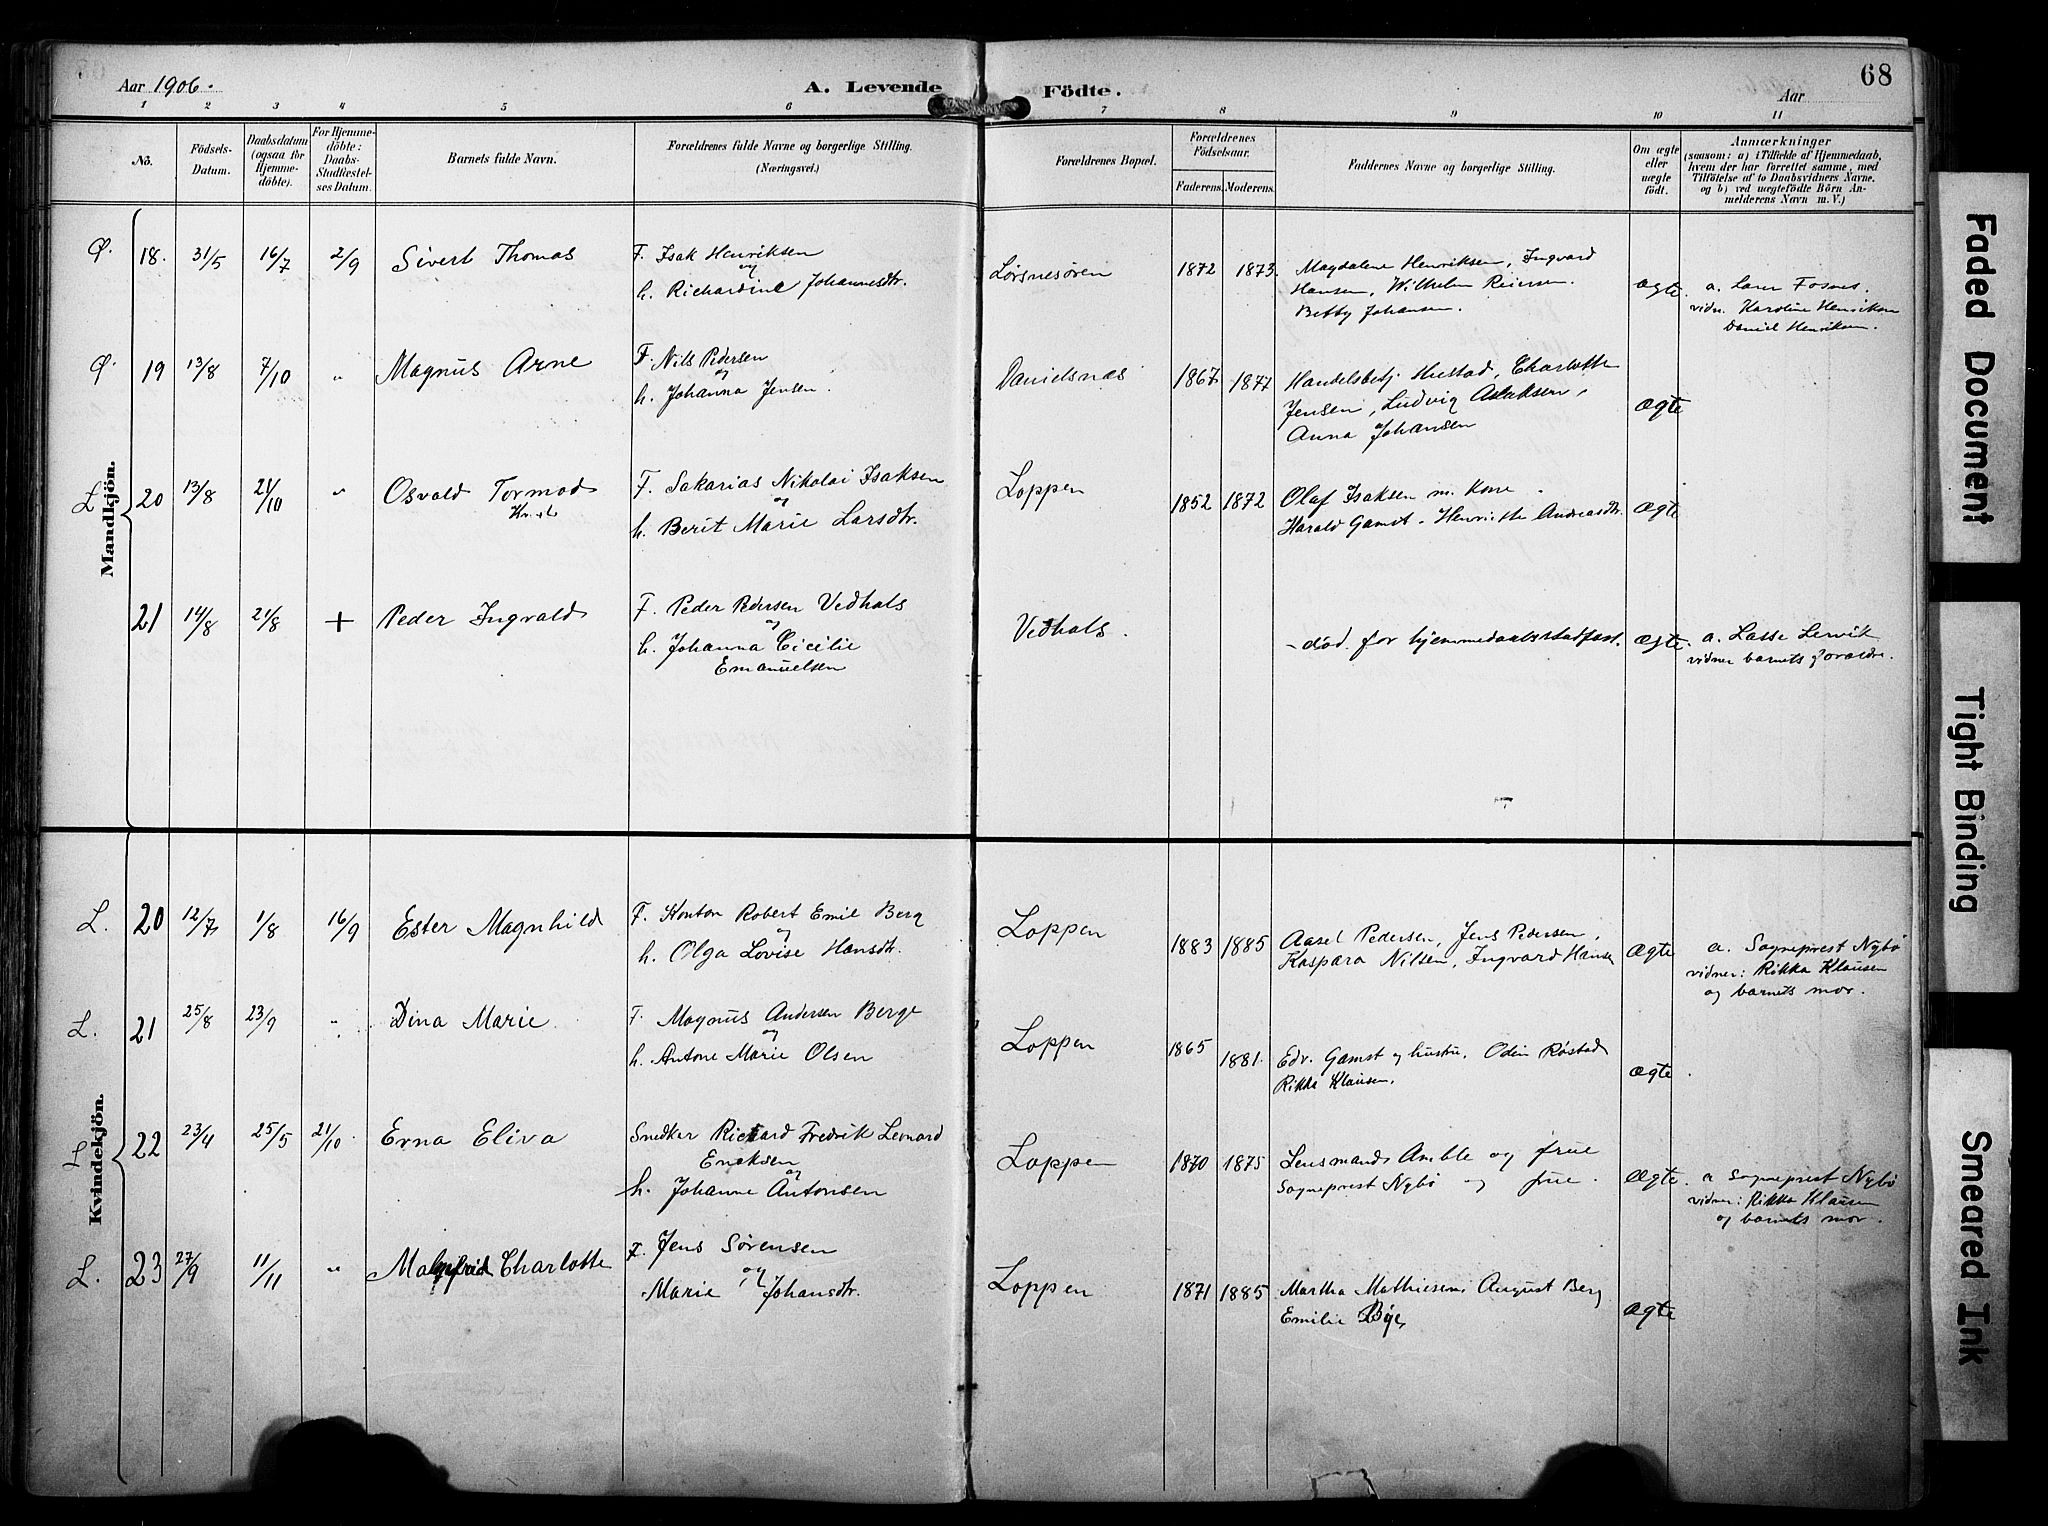 Aar 1906.
A. Levende Födte.
Aar
68
1 2 3 4 5 6 7 8 9 10 11
No.
Födsels-
Datum.
Daabsdatum
(ogsaa för
Hjemme-
döbte).
For Hjemme-
döbte:
Daabs-
Stadfæstel-
ses Datum.
Barnets fulde Navn.
Forældrenes fulde Navne og borgerlige Stilling.
(Næringsvei.)
Forældrenes Bopæl.
Forældrenes
Födselsaar.
Faderens. Moderens.
Faddernes Navne og borgerlige Stilling.
Om ægte
eller
uægte
födt.
Anmærkninger
(saasom: a) i Tilfælde af Hjemmedaab,
hvem der har forrettet samme, med
Tilföielse af to Daabsvidners Navne.
og b) ved uægtefödte Börn An-
melderens Navn m. V.)
Mandkjön.
Ø. 18. 31/5 16/7 2/9 Sivert Thomas
F. Isak Henriksen
og
h. Richardine Johannesdtr.
Lørsnesøren 1872 1873.
Magdalene Henriksen, Ingvard
Hansen, Wilhelm Reiersen.
Betty Johansen.
ægte.
a. Lærer Fosnes.
vidn. Karoline Henriksen
Daniel Henriksen.
Ø. 19 13/8 7/10 " Magnus Arne
F. Nils Pedersen
og
h. Johanna Jensen.
Danielsnes 1867 1877
Handelsbetj. Hustad, Charlotte
Jensen, Ludvig Aslaksen,
Anna Johansen
ægte
L 20 13/8 21/10 " Osvald Tormod
F. Sakarias Nikolai Isaksen
og
h. Berit Marie Larsdtr.
Loppen 1852 1872
Olaf Isaksen m. Kone.
Harald Gamst. Henriette Andreasdtr.
ægte
21 14/8 21/8 + Peder Ingvald
F. Peder Pedersen Vedhals
og
h. Johanna Cicilie
Emanuelsen
Vedhals.
- død før hjemmedaabsstadfæst.
ægte.
a. Lasse Lervik
vidner barnets forældre.
Kvindekjön.
L. 20 12/7 1/8 16/9 Ester Magnhild
F. Kontor Robert Emil Berg
og
h. Olga Lovise Hansdtr.
Loppen 1883 1885
Aasel Pedersen, Jens Pedersen,
Kaspara Nilsen, Ingvard Hansen
ægte
a. Sogneprest Nybø
vidner: Rikka Klausen
og barnets mor.
L. 21 25/8 23/9 " Dina Marie
F. Magnus Andersen Berge
og
h. Antone Marie Olsen
Loppen 1865 1881.
Edv. Gamst og hustru. Odin Røstad
Rikka Klausen.
ægte
L 22 23/4 25/5 21/10 Erna Eliva
Snedker Richard Fredrik Leonard
Ericksen
og
h. Johanne Antonsen
Loppen 1870 1875
Lensmand Amble og frue
Sogneprest Nybø og frue.
ægte.
a Sogneprest Nybø
vidner: Rikka Klausen
og barnets mor.
L. 23 27/9 11/11 " Malmfrid Charlotte
F. Jens Sørensen
og
Marie Johansdtr.
Loppen 1871 1885
Martha Mathiesen, August Berg
Emilie Bye
ægte
Faded Document
Tight Binding
Smeared Ink